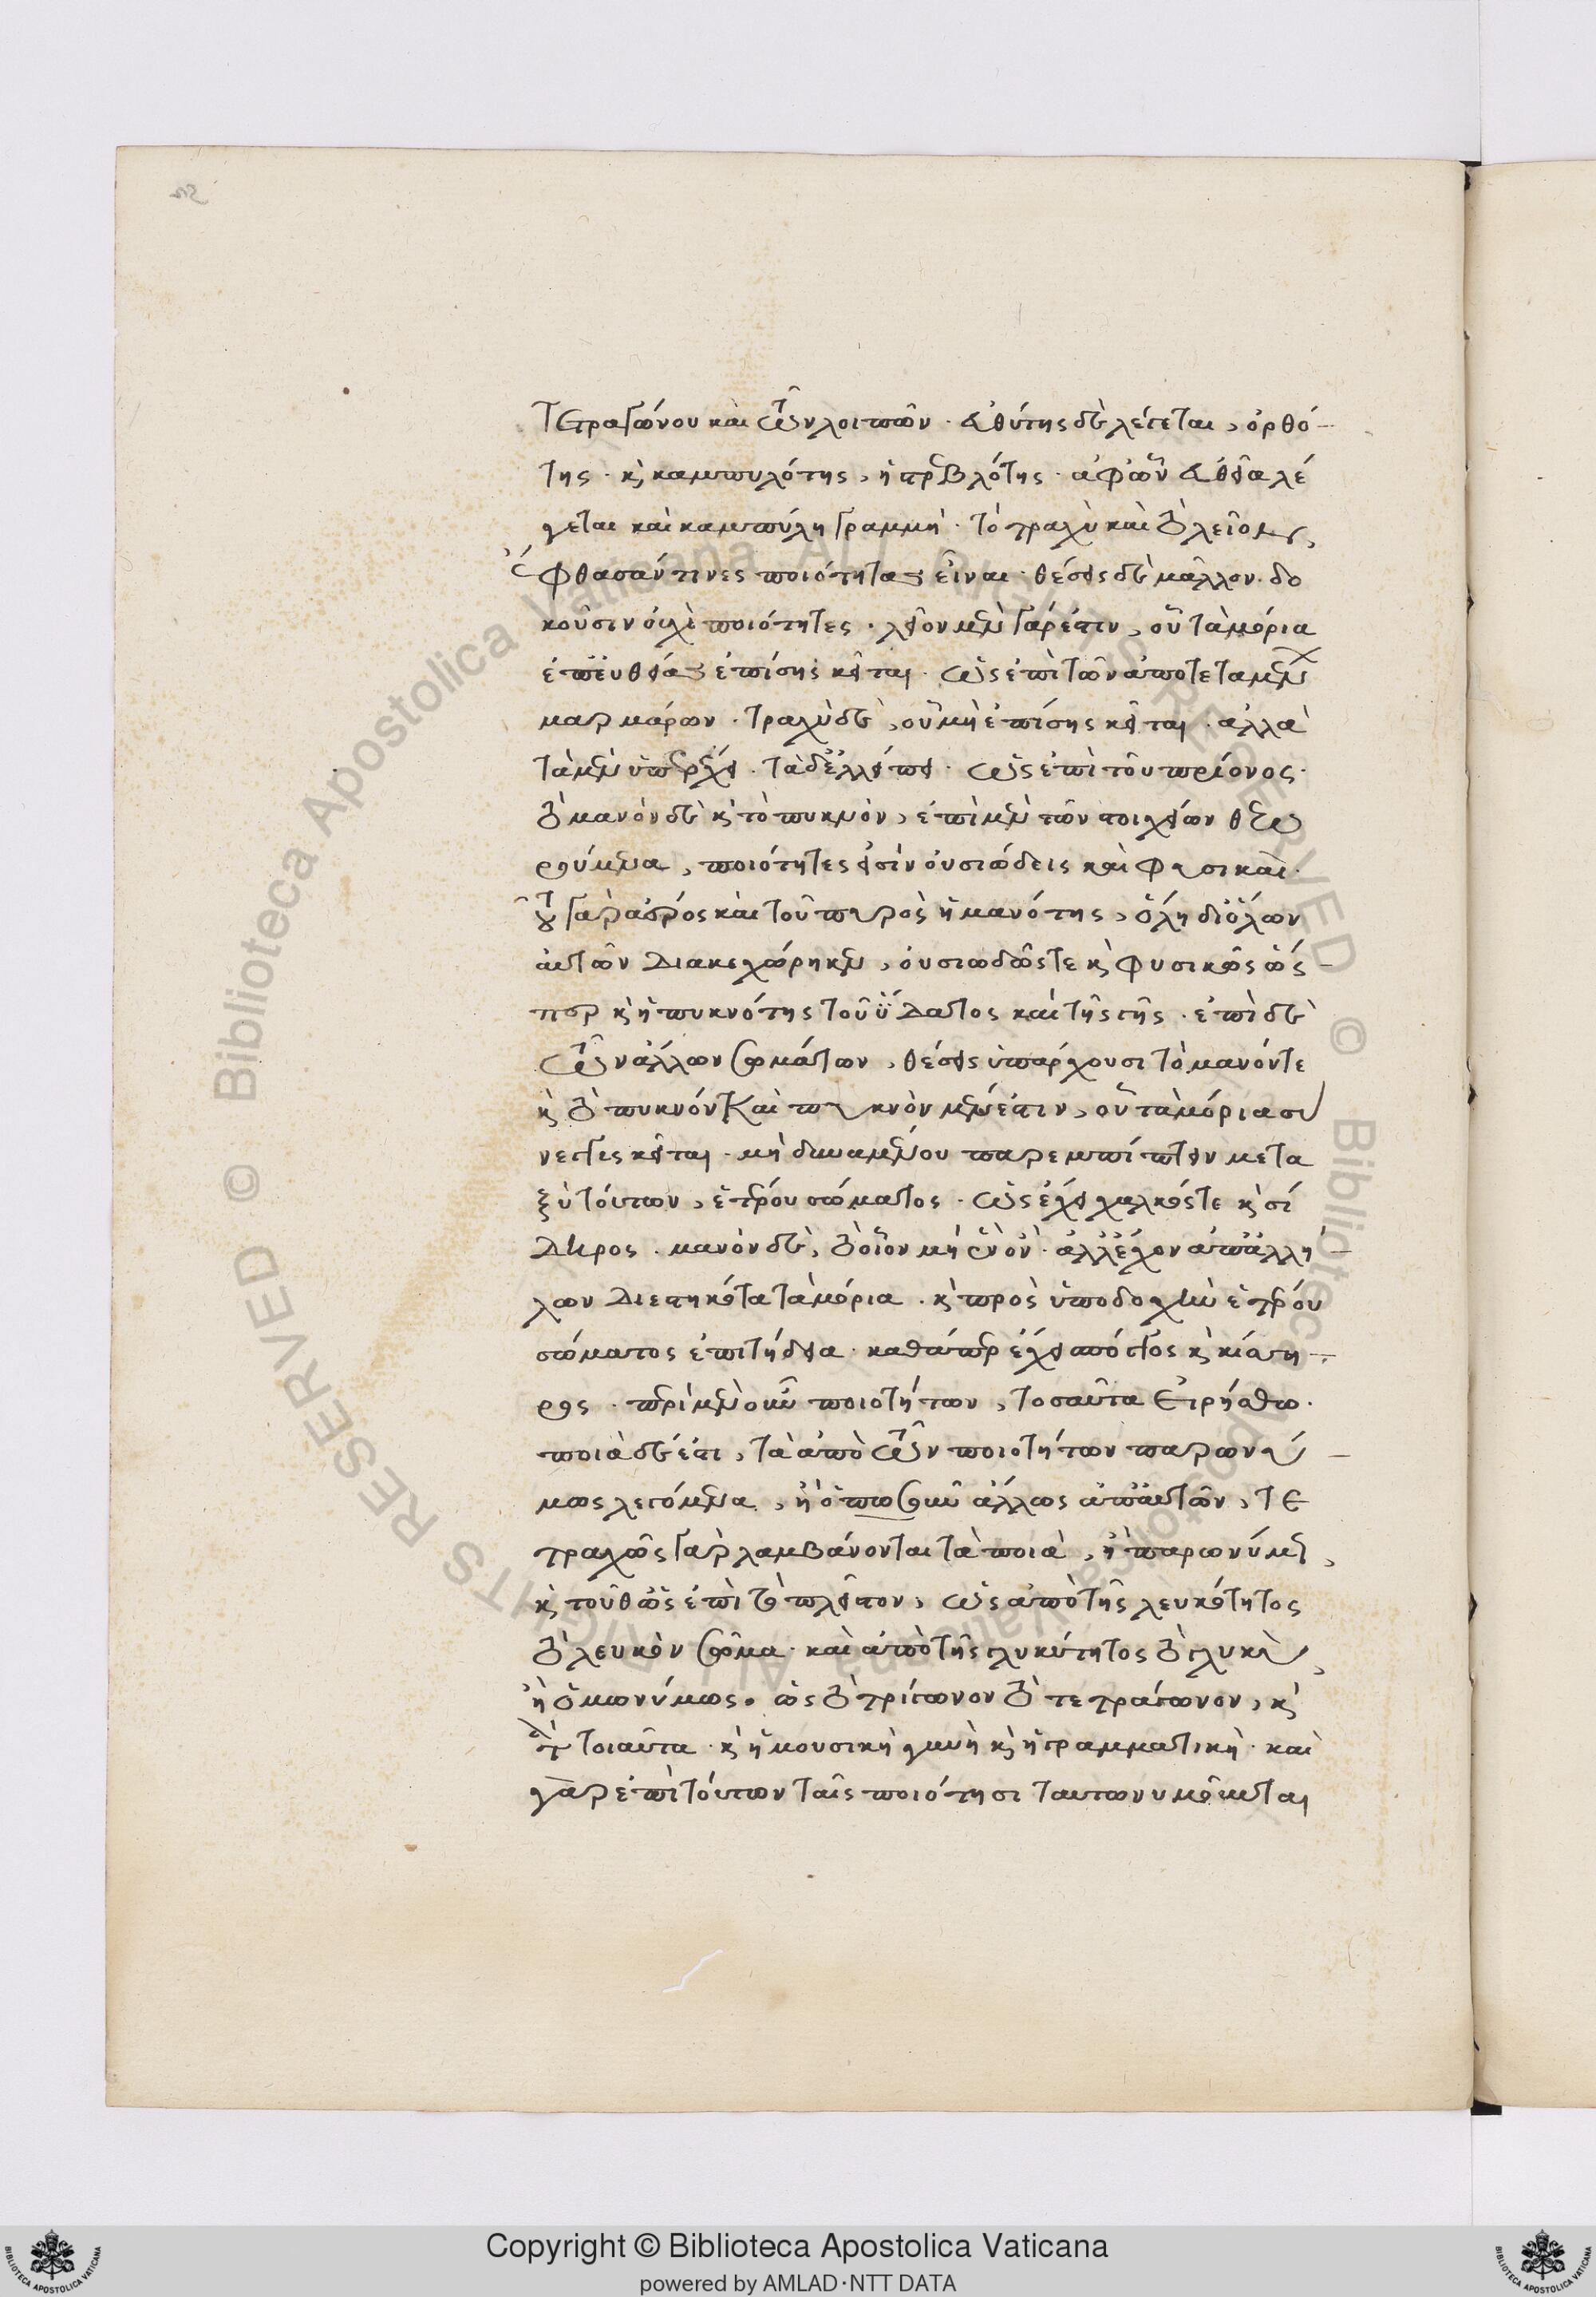 τετραγώνου καὶ τῶν λοιπῶν· εὐθύτης δὲ λέγεται, ὀρθό-
της· κ(αὶ) καμπυλότης, ἡ στρεβλότης· ἀφ' ὧν εὐθεῖα λέ
γεται καὶ καμπύλη γραμμή· τὸ τραχὺ καὶ τὸ λεῖον,
ἔφθασάν τινες ποιότητας εἶναι· θέσεις δὲ μᾶλλον δο
κοῦσιν οὐχὶ ποιότητες· λεῖον μὲν γάρ ἐστιν, οὗ τὰ μόρια
ἐπ' εὐθείας ἐπίσης κεῖται· ὡς ἐπὶ τῶν ἀποτεταμένων
μαρμάρων· τραχὺ δὲ, οὗ μὴ ἐπίσης κεῖται· ἀλλὰ
τὰ μὲν ὑπερέχει· τὰ δ' ἐλλείπει· ὡς ἐπὶ τοῦ πρίονος·
τὸ μανὸν δὲ κ(αὶ) τὸ πυκνὸν, ἐπὶ μὲν τῶν στοιχείων θεω
ρούμενα, ποιότητες εἰσὶν οὐσιώδεις καὶ φυσικαί·
τοῦ γὰρ ἀέρος καὶ τοῦ πυρὸς ἡ μανότης, ὅλη δι' ὅλων
αὐτῶν διακεχώρηκεν, οὐσιωδῶς τε κ(αὶ) φυσικῶς ὡς-
περ κ(αὶ) ἡ πυκνότης τοῦ ὕδατος καὶ τῆς γῆς· ἐπὶ δὲ
τῶν ἄλλων σωμάτων, θέσεις ὑπάρχουσι τὸ μανόν τε
κ(αὶ) τὸ πυκνόν καὶ πυκνὸν μέν ἐστιν, οὗ τὰ μόρια συ
νεγγὺς κεῖται· μὴ δυναμένου παρεμπίπτειν μετα
ξὺ τούτων, ἑτέρου σώματος· ὡς ἔχει χαλκός τε κ(αὶ) σί
δηρος· μανὸν δὲ, τὸ οἷον μὴ ἓν ὂν· ἀλλ' ἔχον ἀπ' ἀλλή-
λων διεστηκότα τὰ μόρια· κ(αὶ) πρὸς ὑποδοχὴν ἑτέρου
σώματος ἐπιτήδεια· καθάπερ ἔχει σπόγγος κ(αὶ) κίση-
ρος· περὶ μὲν οὖν ποιοτήτων, τοσαῦτα εἰρήσθω·
ποιὰ δέ ἐστι, τὰ ἀπὸ τῶν ποιοτήτων παρωνύ-
μως λεγόμενα, ἢ ὁπωσοῦν ἄλλως ἀπ' αὐτῶν, τε
τραχῶς γὰρ λαμβάνονται τὰ ποιὰ, ἢ παρωνύμως,
κ(αὶ) τοῦθ' ὡς ἐπὶ τὸ πλεῖστον, ὡς ἀπὸ τῆς λευκότητος
τὸ λευκὸν σῶμα· καὶ ἀπὸ τῆς γλυκύτητος τὸ γλυκὺ,
ἢ ὁμωνύμως. ὡς τὸ τρίγωνον τὸ τετράγωνον, κ(αὶ)
τὰ τοιαῦτα· κ(αὶ) ἡ μουσικὴ γυνὴ κ(αὶ) ἡ γραμματικὴ· καὶ
γὰρ ἐπὶ τούτων ταῖς ποιότησι ταυτωνυμοῦνται
Copyright © Biblioteca Apostolica Vaticana
powered by AMLAD·NTT DATA